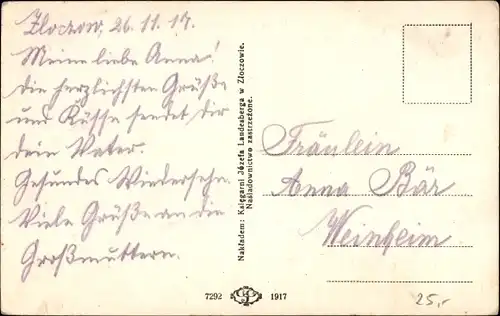 Zloczow, 26.11.17.
Meine liebe Anna!
Die herzlichsten Grüße
und Küsse sendet dir
dein Vater.
Gesundes Wiedersehn.
Viele Grüße an die
Großmuttern.
Nakładem: Księgarni Józefa Landesberga w Złoczowie.
Naśladownictwo zastrzeżone.
Fräulein
Anna Bär
Weinheim
7292 1917
25,-